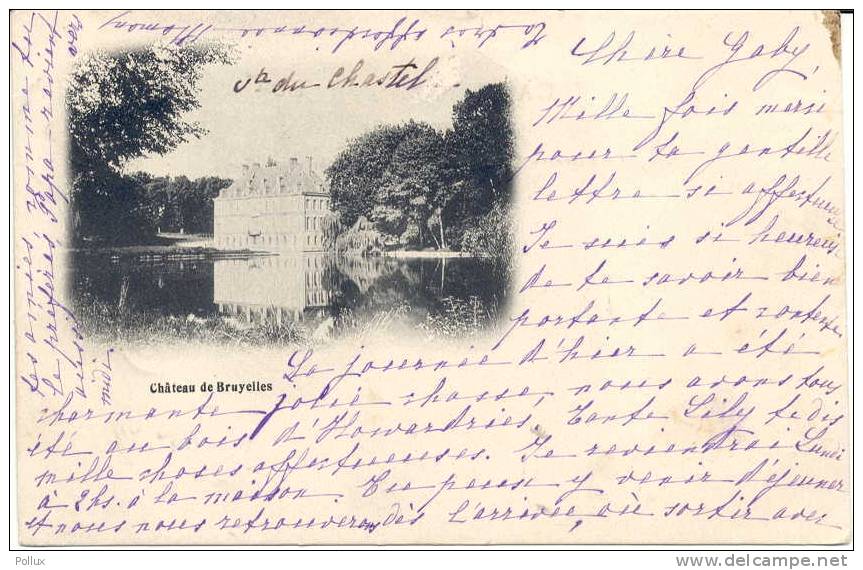 Chère Gaby,
Mille fois merci
pour ta gentille
lettre si affectueuse
Je suis si heureuse
de te savoir bien
portante et contente
La journée d'hier a été
charmante jolie chasse, nous avons tous
été au bois d'Howardries. Tante Lily te dis
mille choses affectueuses. Je reviendrai Lundi
à 2hs. à la maison. Tu peux y venir déjeuner
et nous nous retrouverons dès l'arrivée, où sortir avec
tes amies, comme tu
le préfères. Papa revient
aussi
midi
Ta très affectionnée Mamony
Vte du Chastel
Château de Bruyelles
Pollux
www.delcampe.net